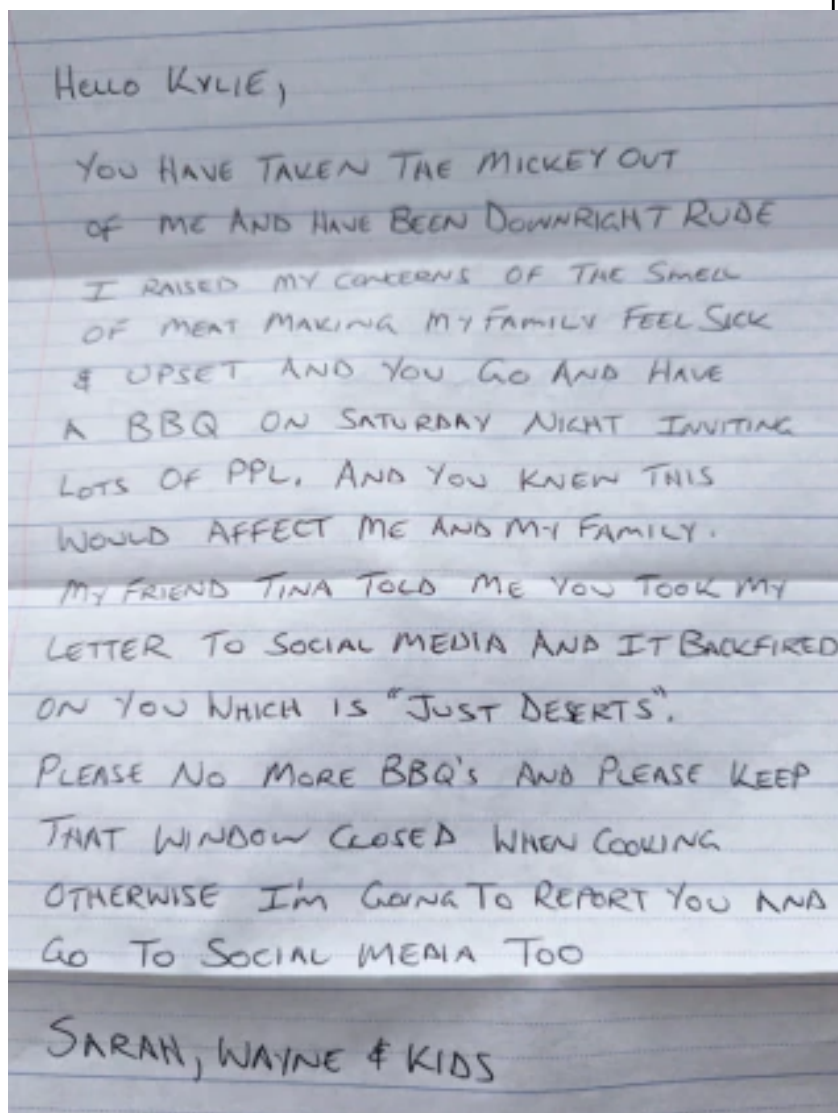 Hello Kylie,
You have taken the mickey out
of me and have been downright rude
I raised my concerns of the smell
of meat making my family feel sick
& upset and you go and have
a BBQ on Saturday night inviting
lots of ppl. And you knew this
would affect me and my family.
My friend Tina told me you took my
letter to social media and it backfired
on you which is "Just Deserts".
Please no more BBQ's and please keep
that window closed when cooking
otherwise I'm going to report you and
go to social media too
Sarah, Wayne & kids